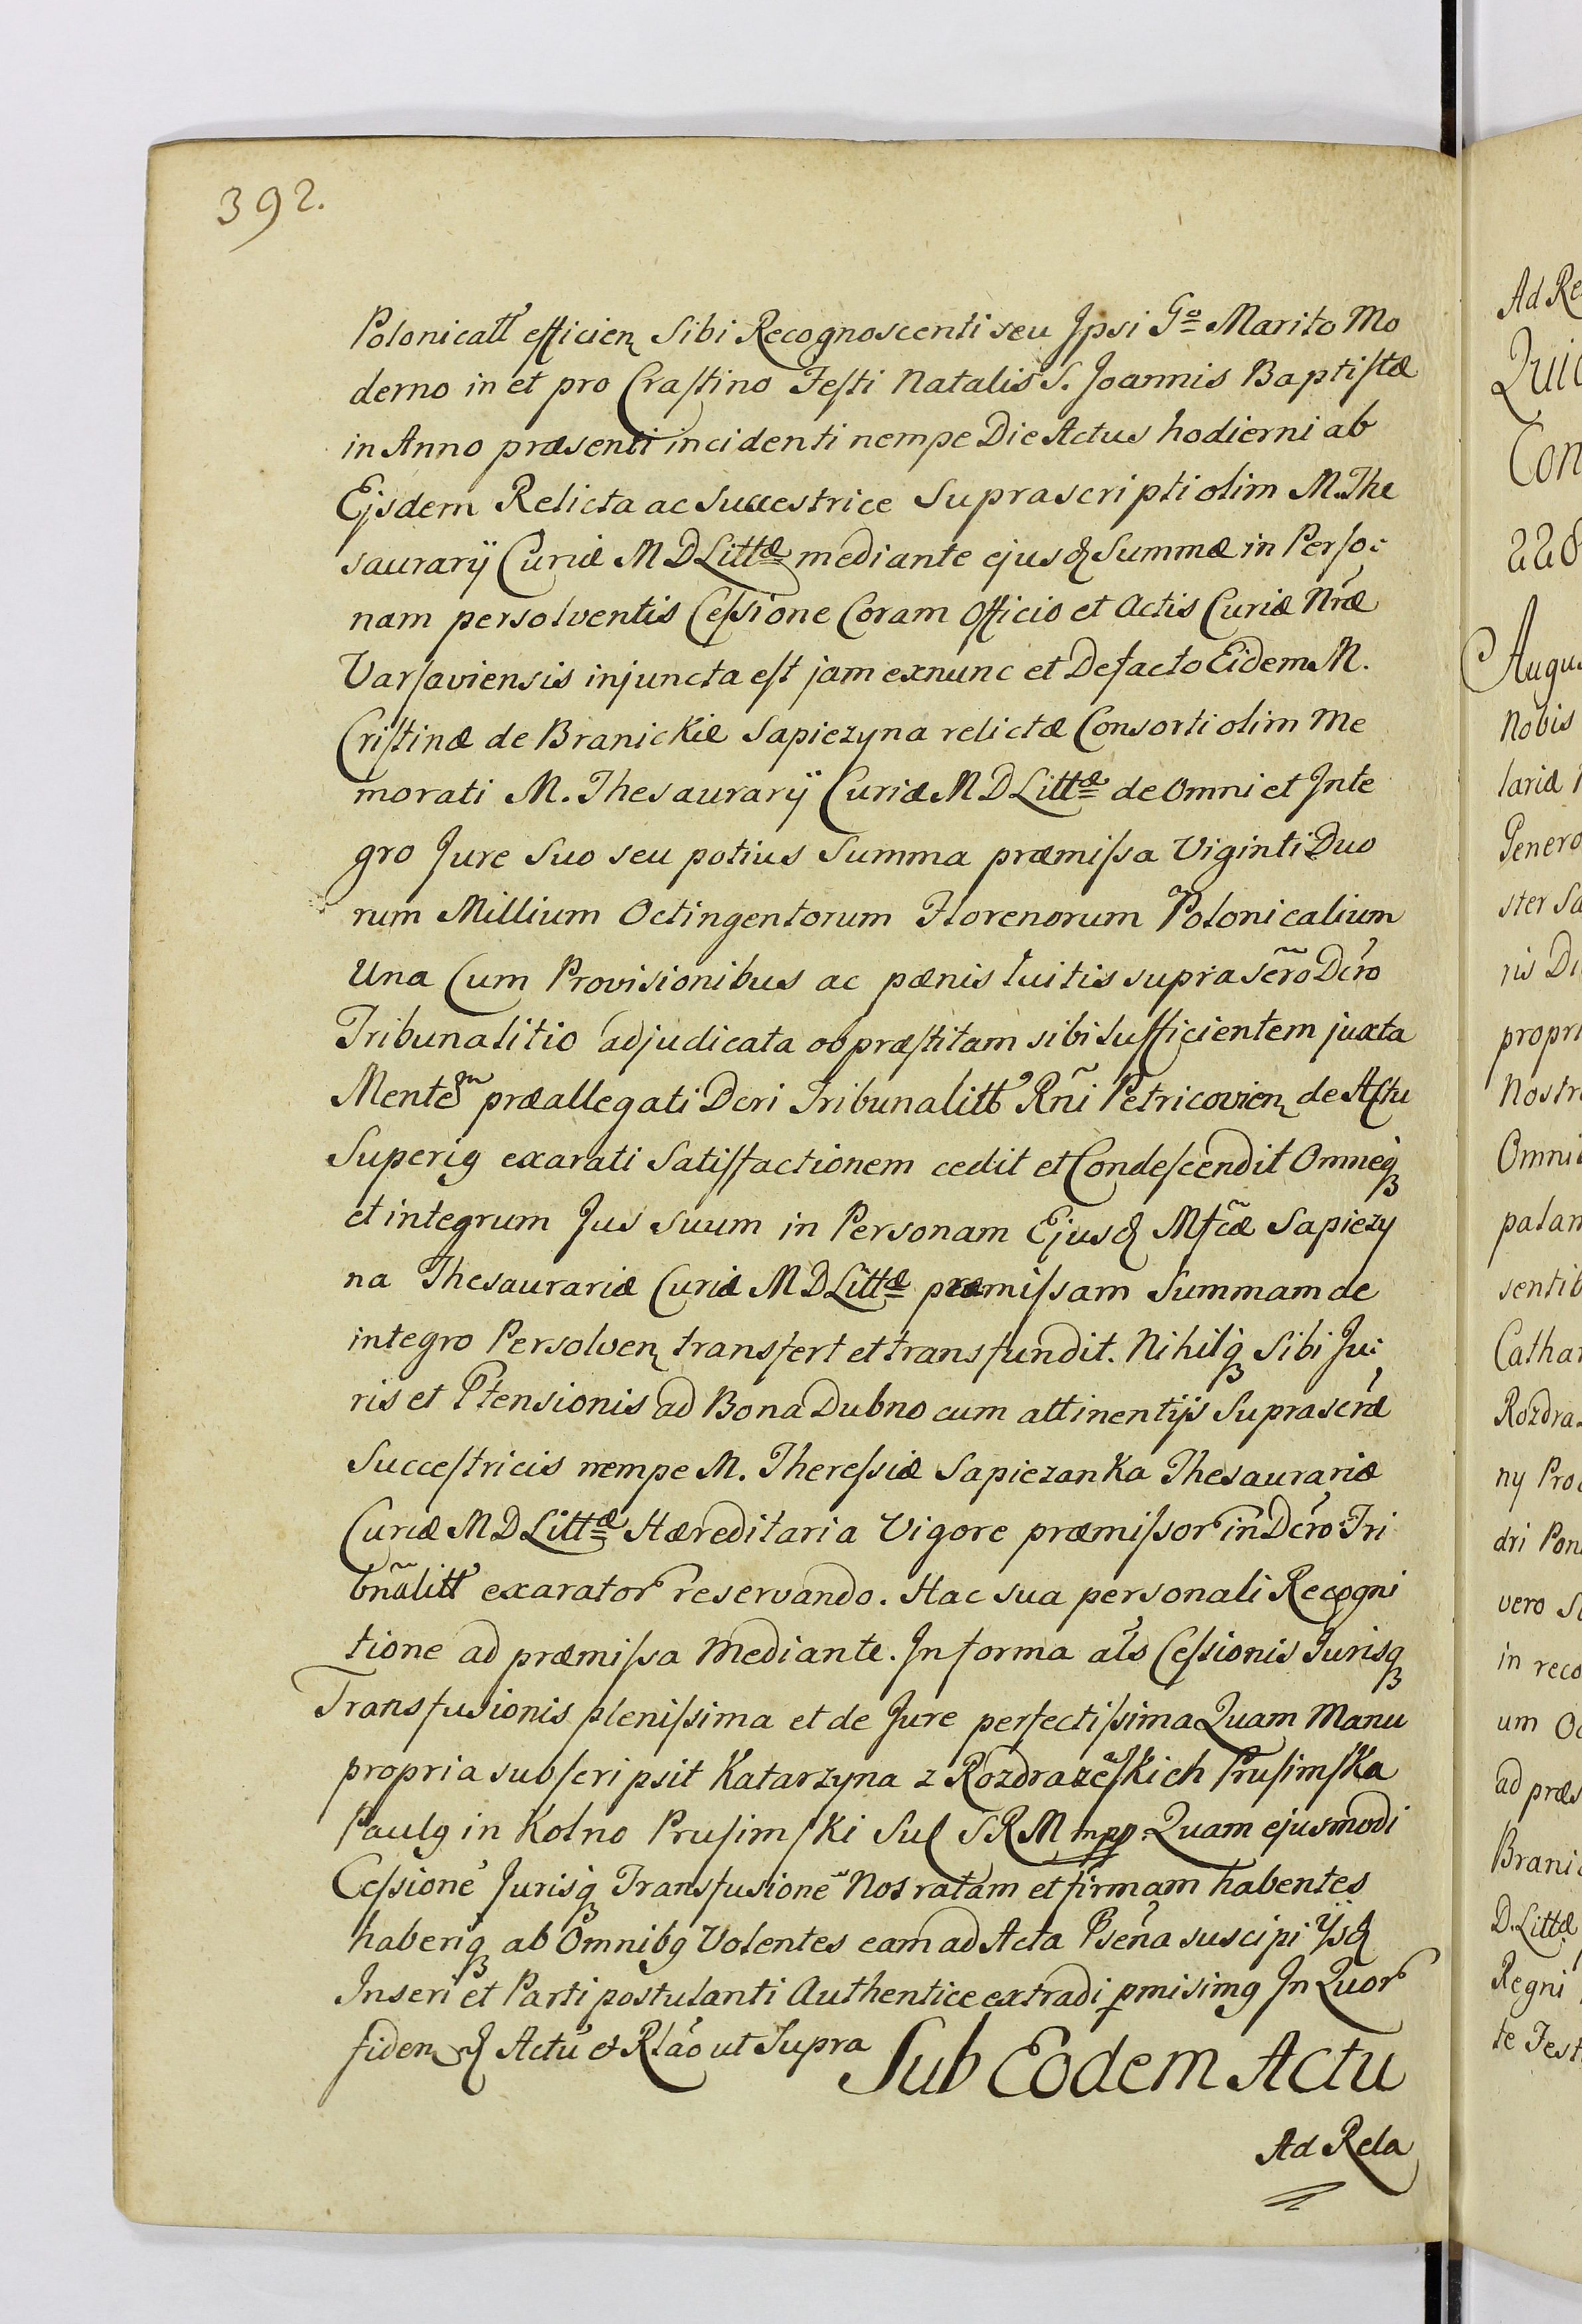 392.
Polonicall efficien Sibi Recognoscenti seu Jpsi Go Marito Mo
derno in et pro Crastino Festi Natalis S. Joannis Baptistæ
in Anno præsenti incidenti nempe Die Actus hodierni ab
Ejsdem Relicta ac Succestrice Suprascripti olim M. The
saurarÿ Curiæ M D Littæ mediante ejusq Summæ in Perso:
nam persolventis Cessione Coram Officio et Actis Curiæ Nræ
Varsaviensis injuncta est jam exnunc et De facto Eidem M.
Cristinæ de Branickie Sapiezyna relictæ Consorti olim Me
morati M. Thesaurarÿ Curiæ M D Littæ de Omni et Jnte
gro Jure Suo seu potius Summa præmissa Viginti Duo
rum Millium Octingentorum Florenorum Polonicalium
Una Cum Provisionibus ac pænis luitis supra scro Dcro
Tribunalitio adjudicata ob præstitam sibi Sufficientem juxta
Mentem præallegati Dcri Tribunalitt Rñi Petricovien de Actu
Superiq exarati Satisfactionem cedit et Condescendit Omneq
et integrum Jus suum in Personam Ejusq Mfcæ Sapiezy
na Thesaurariæ Curiæ M D Littæ præmissam Summam de
integro Persolven transfert et transfundit. Nihilq Sibi Ju:
ris et Ptensionis ad Bona Dubno cum attinentijs Suprascræ
Succestricis nempe M. Theressiæ Sapiezanka Thesaurariæ
Curiæ M D Littæ Hæreditaria Vigore præmissor in Dcro Tri
bnalitt exarator reservando. Hac sua personali Recogni
tione ad præmissa Mediante. Jn forma als Cessionis Jurisq
Transfusionis plenissima et de Jure perfectissima Quam Manu
propria subscripsit Katarzyna z Rozdrazeskich Prusimska
Paulq in Kolno Prusimski Sul S R M mpp. Quam ejusmodi
Cessione Jurisq Transfusione Nos ratam et firmam habentes
haberiq ab Omnibq Volentes eam ad Acta Psena suscipi ÿsq
Jnseri et Parti postulanti Authentice extradi pmisimq Jn Quor
fidem Actu et Rlao ut Supra
Sub Eodem Actu
Ad Rela
Ad Re
Con
228
Augu
Nobis
lariæ
Genero
ster Sa
ris Di
propri
Nostr
Omni
palan
sentib
Cathar
Rozdra
ny Pro
dri Pon
vero S
in reco
um O
ad præs
Brani
D. Littæ
Regni
te Fest